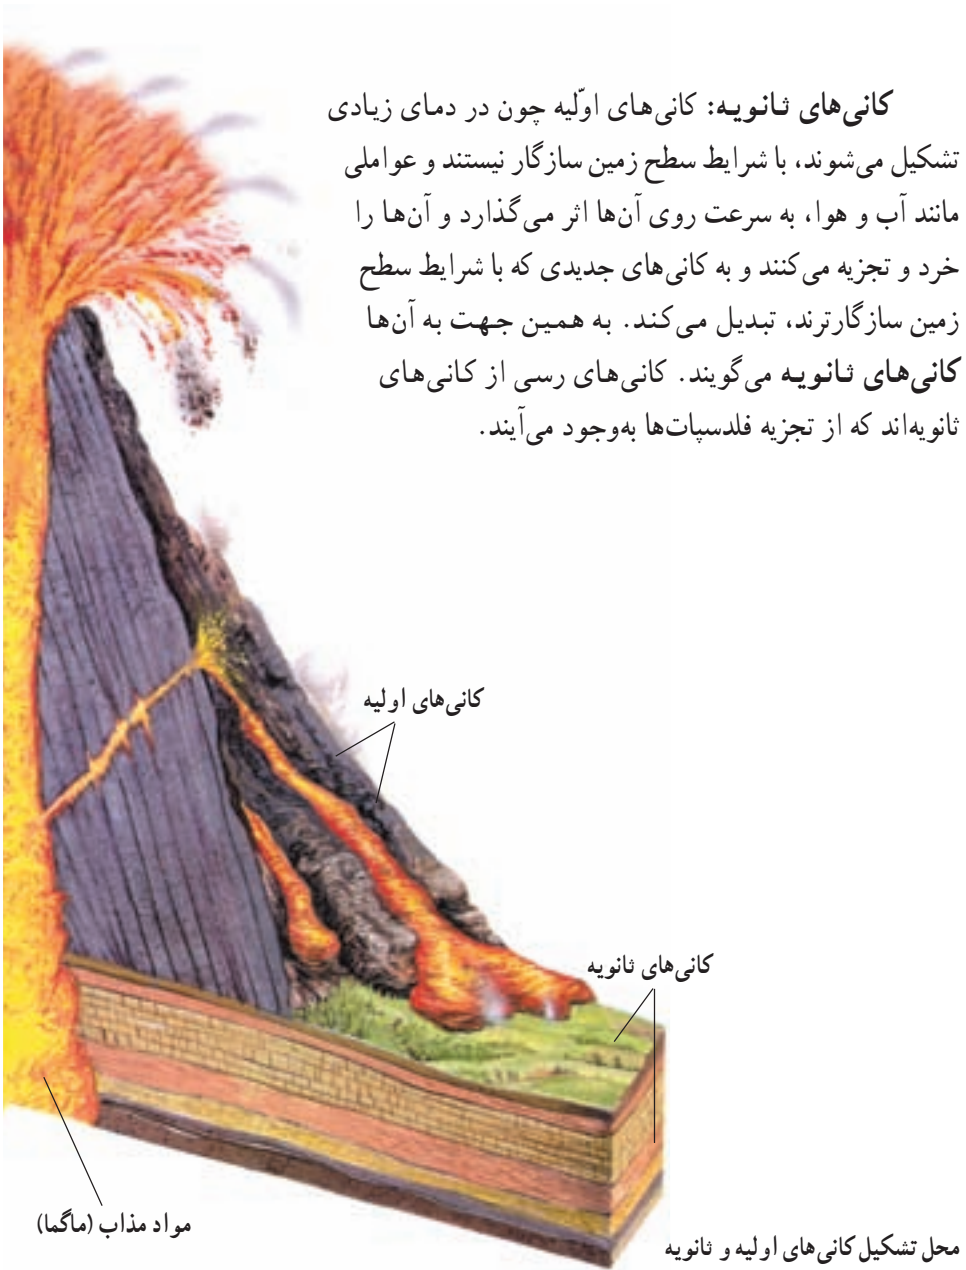 کانی‌های ثانویه: کانی‌های اوّلیه چون در دمای زیادی
تشکیل می‌شوند، با شرایط سطح زمین سازگار نیستند و عواملی
مانند آب و هوا، به سرعت روی آن‌ها اثر می‌گذارد و آن‌ها را
خرد و تجزیه می‌کنند و به کانی‌های جدیدی که با شرایط سطح
زمین سازگارترند، تبدیل می‌کند. به همین جهت به آن‌ها
کانی‌های ثانویه می‌گویند. کانی‌های رسی از کانی‌های
ثانویه‌اند که از تجزیه فلدسپات‌ها به‌وجود می‌آیند.
کانی‌های اولیه
کانی‌های ثانویه
مواد مذاب (ماگما)
محل تشکیل کانی‌های اولیه و ثانویه